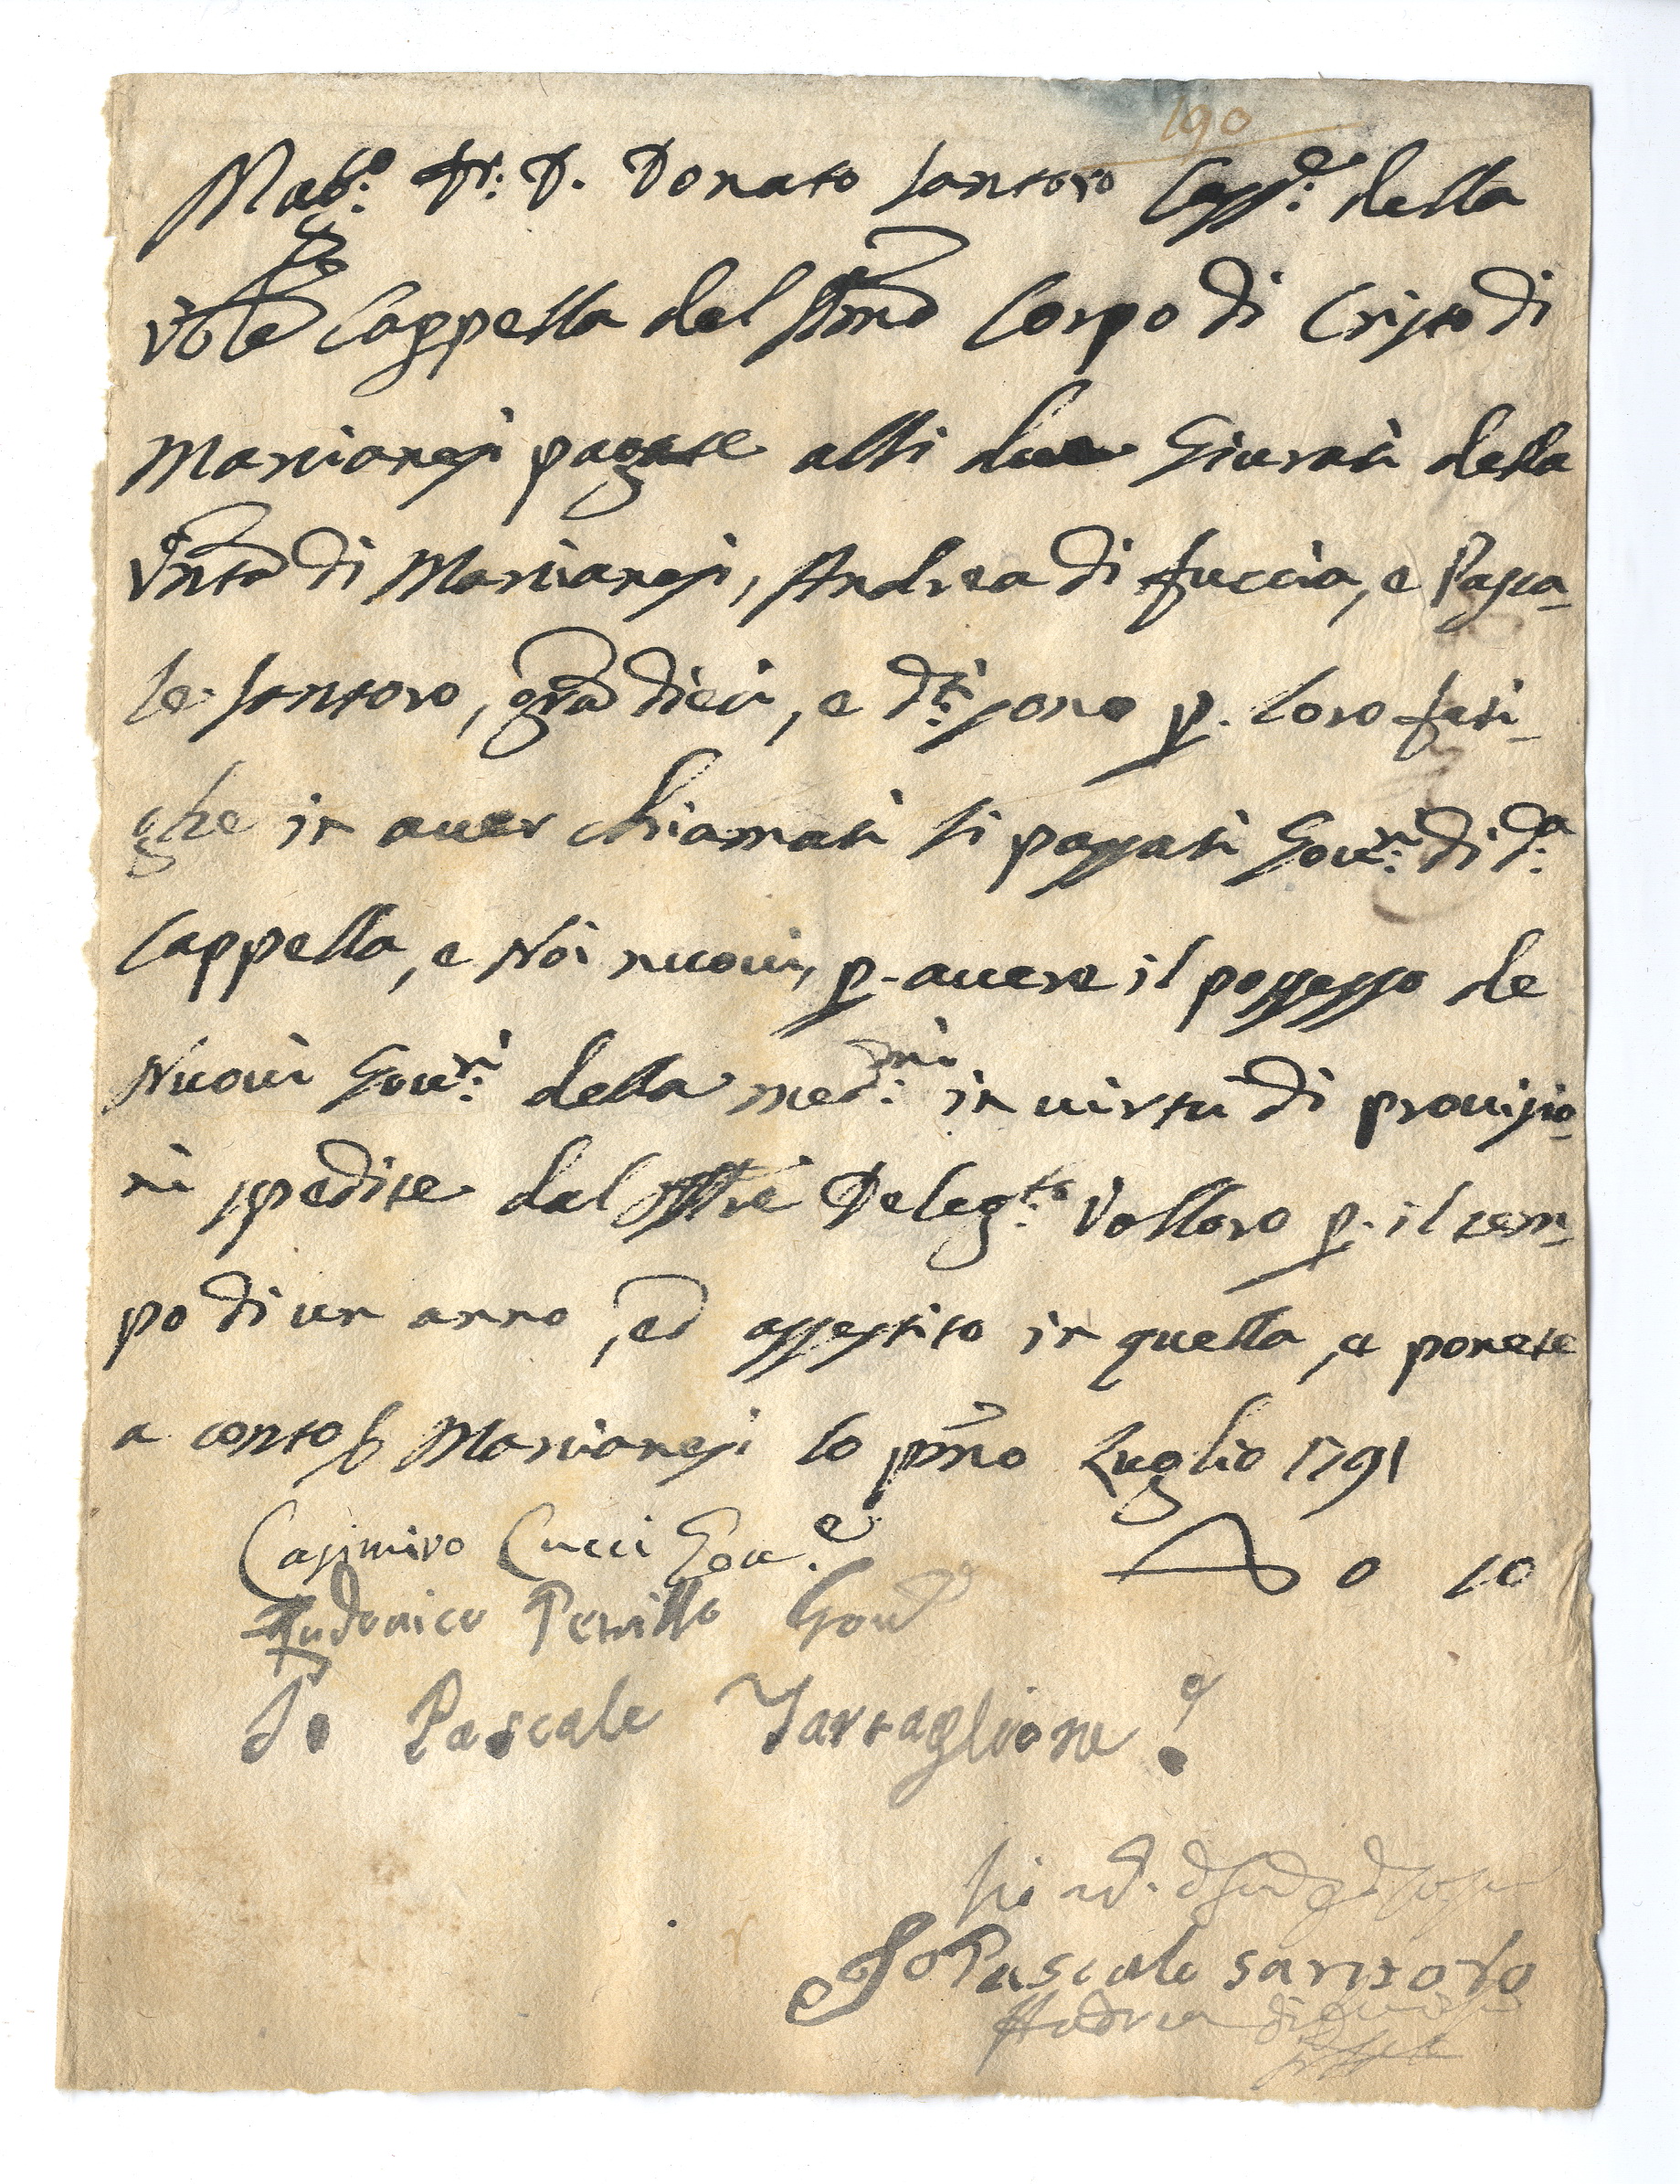 190
Mag.co Dr: D. Donato Santoro Cass.e della
Vble Cappella del SSmo Corpo di Cristo di
Marcianesi pagate alli due Giurati della
Vnità di Marcianesi, Andrea di fuccia, e Pasca-
le Santoro, grà dieci, e d:ti sono p. loro fati-
ghe in auer chiamati li passati Gou:ri di d:a
Cappella, e Noi nuoui, p. auere il possesso de
Nuoui Gou:ri della med:ma in uirtù di prouisio-
ni spedite dal Deleg:to Vollaro p. il tem-
po di un anno, ed assestito in quella, e ponete
a conto Marcianesi lo pmo Luglio 1791
Casimiro Cucci Gou.e
0 10
Ludouico Perrillo Gou.e
Io Pascale Tartaglione
Io Pascale santoro
Andrea di